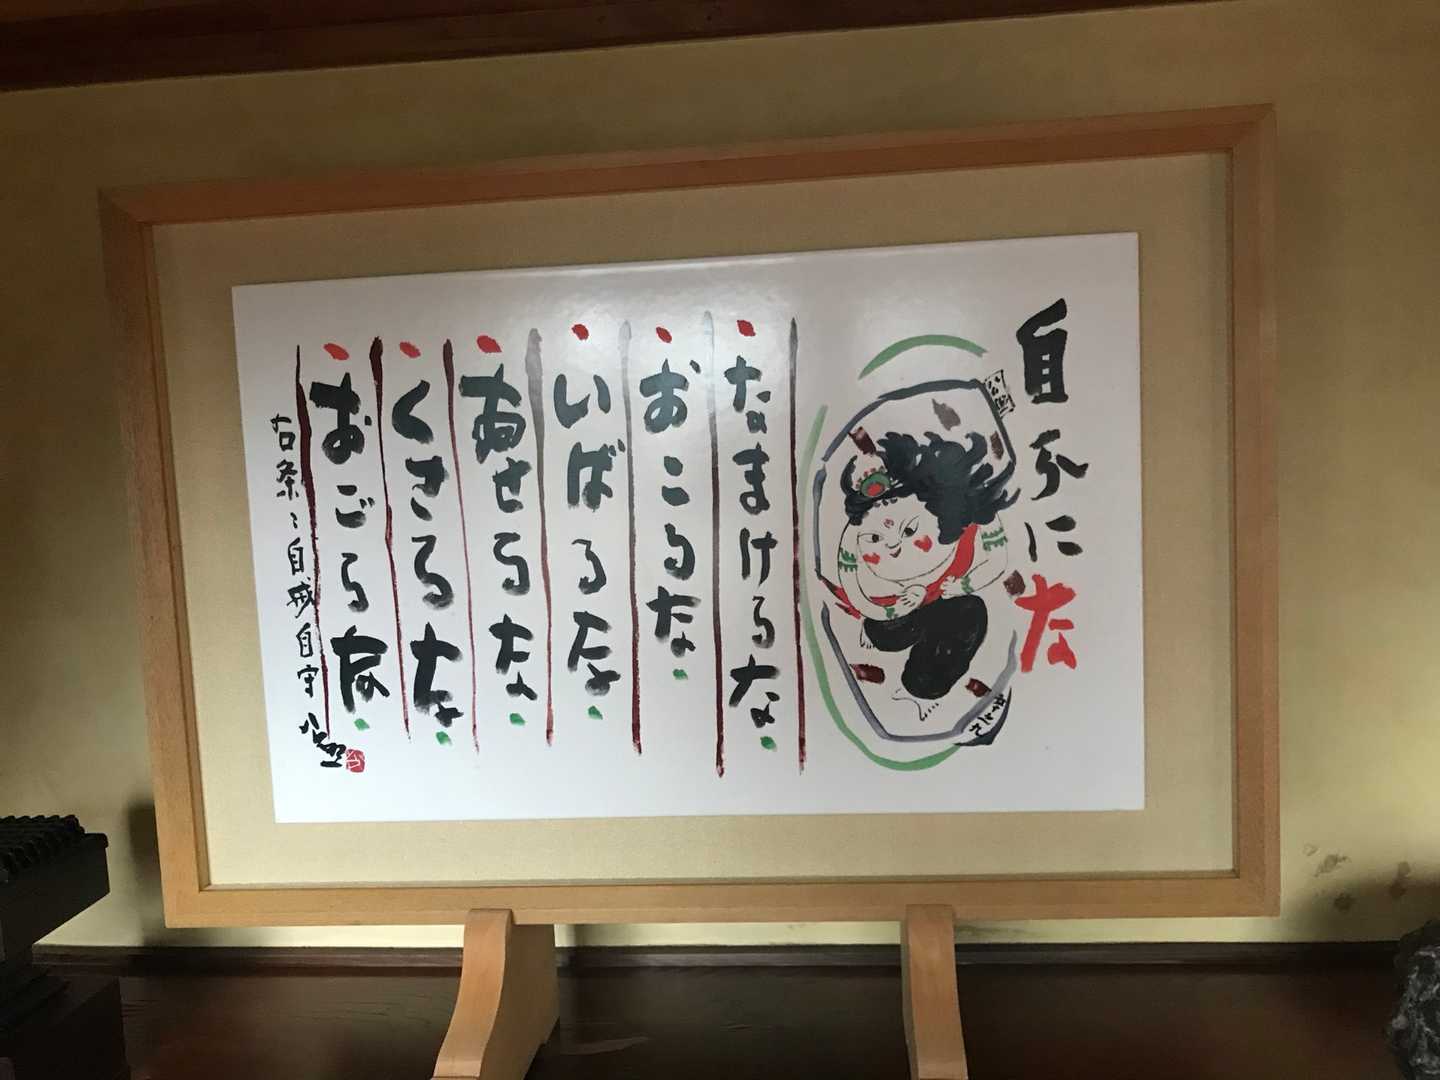 自分にな
なまけるな
おこるな
いばるな
あせるな
くさるな
おごるな
右条々自戒自守